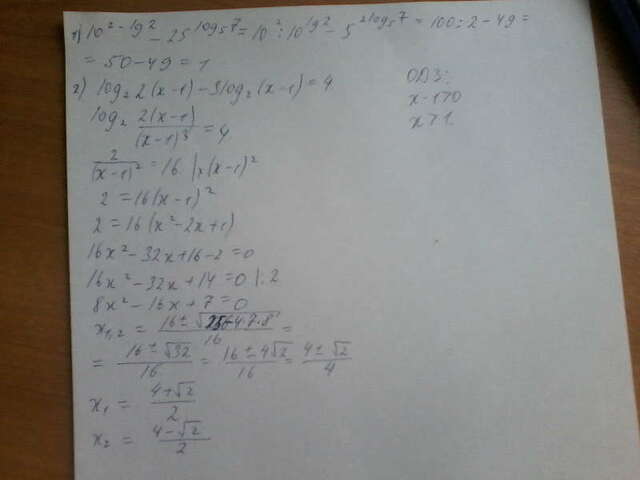 1) 10^(2-lg2) - 25^(log₅7) = 10² : 10^(lg2) - 5^(2log₅7) = 100 : 2 - 49 =
= 50 - 49 = 1
2) log₂ 2(x-1) - 3log₂(x-1) = 4
ОДЗ:
x-1>0
x>1.
log₂ 2(x-1)/(x-1)³ = 4
2/(x-1)² = 16 |x(x-1)²
2 = 16(x-1)²
2 = 16(x²-2x+1)
16x² - 32x + 16 - 2 = 0
16x² - 32x + 14 = 0 |:2
8x² - 16x + 7 = 0
x₁,₂ = (16 ± √(256-4·7·8))/16 =
= (16 ± √32)/16 = (16 ± 4√2)/16 = (4 ± √2)/4
x₁ = (4+√2)/2
x₂ = (4-√2)/2